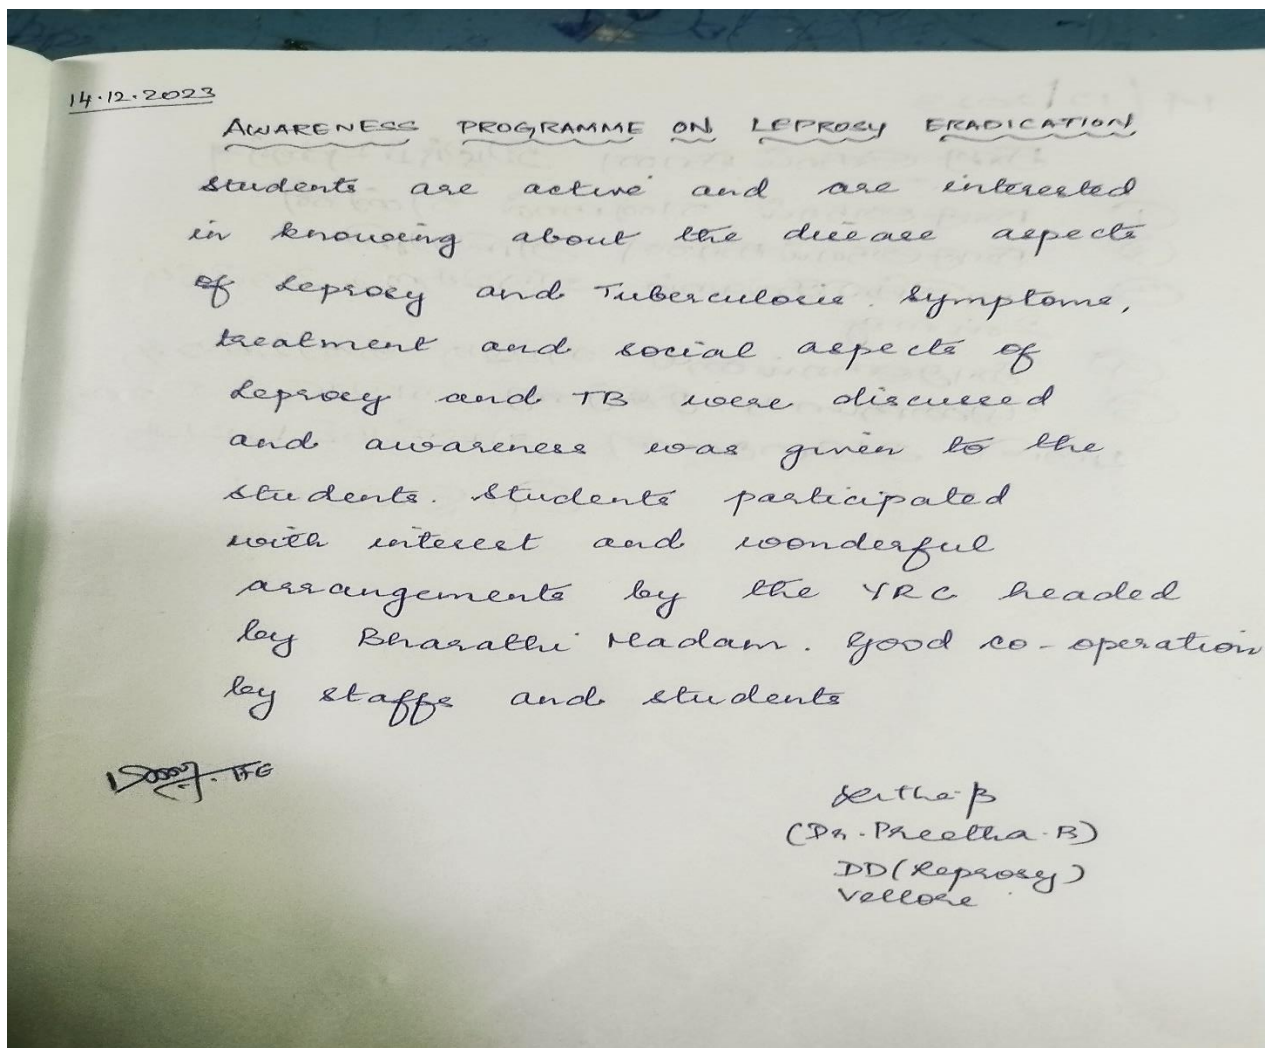 14.12.2023
AWARENESS PROGRAMME ON LEPROSY ERADICATION
Students are active and are interested
in knowing about the disease aspects
of Leprosy and Tuberculosis. Symptoms,
treatment and social aspects of
Leprosy and TB were discussed
and awareness was given to the
students. Students participated
with interest and wonderful
arrangements by the YRC headed
by Bharathi Madam. Good co-operation
by staffs and students
(Dr. Preetha. B)
DD (Leprosy)
Vellore